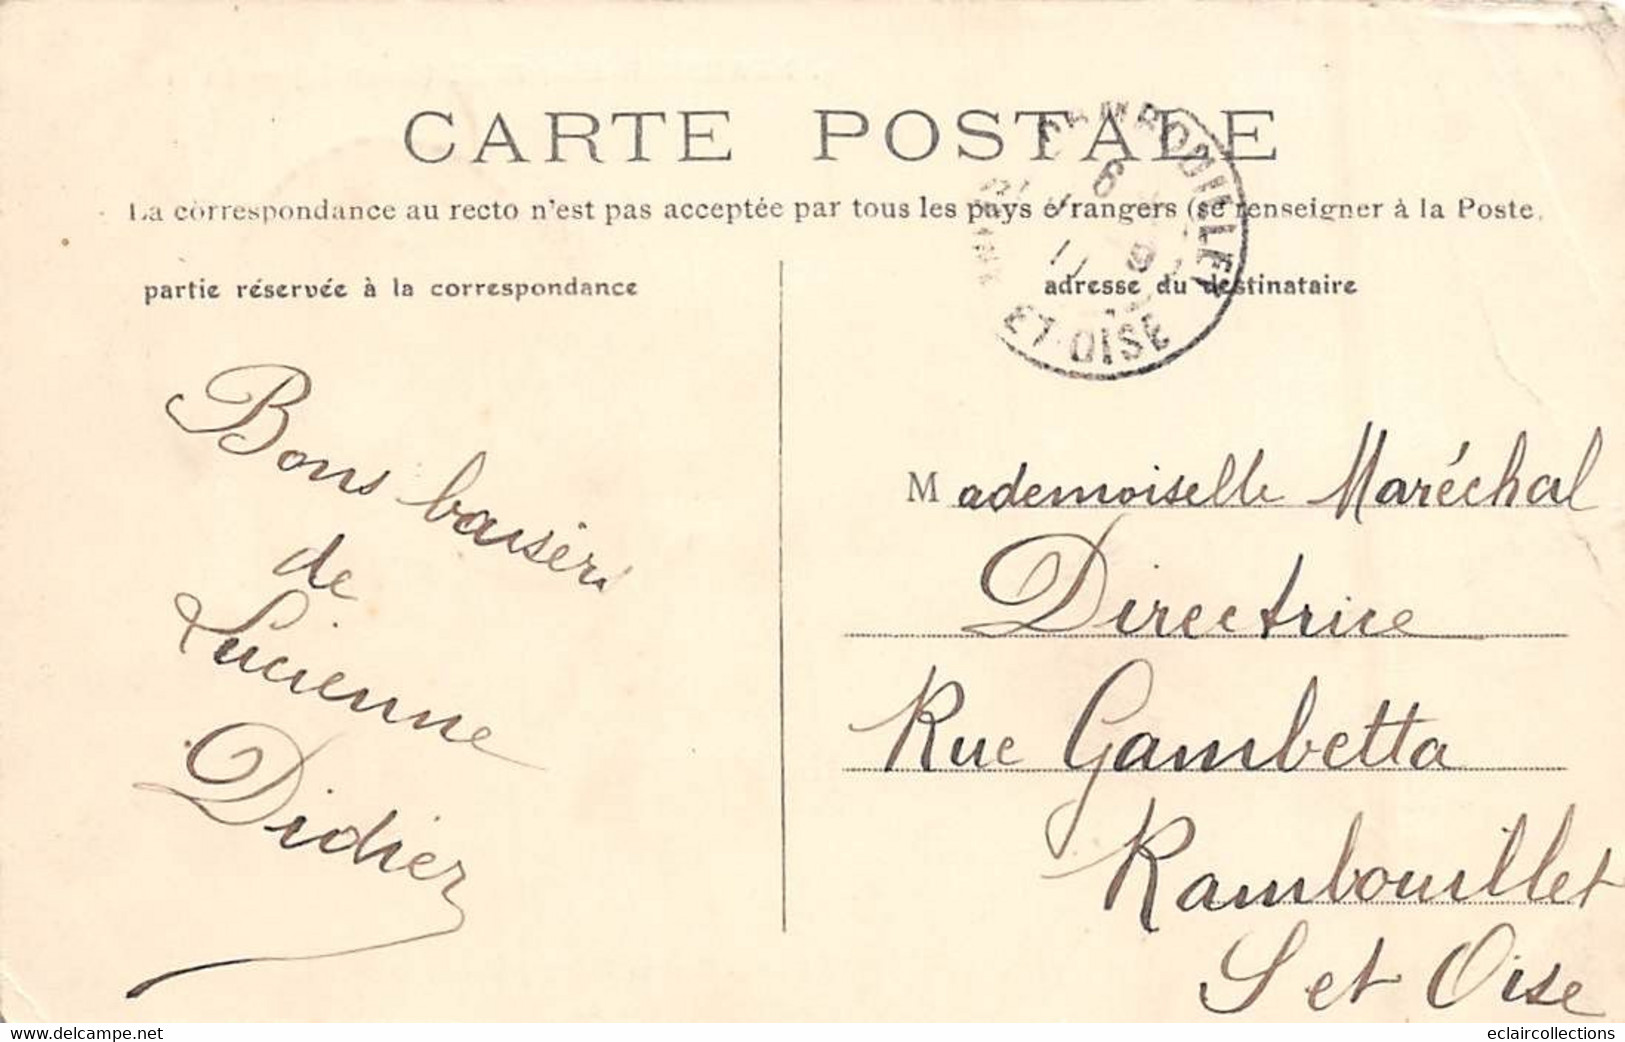 CARTE POSTALE
La correspondance au recto n'est pas acceptée par tous les pays étrangers (se renseigner à la Poste.
partie réservée à la correspondance
adresse du destinataire
RAMBOUILLET
ET-OISE
Bons baisers
de
Lucienne
Didier
Mademoiselle Maréchal
Directrice
Rue Gambetta
Rambouillet
S et Oise
www.delcampe.net
eclaircollections